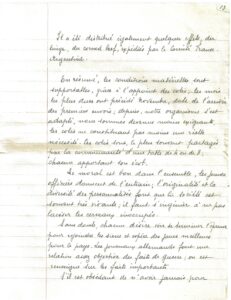 Il a été distribué également quelques effets, du
linge, du corned beef, expédiés par le Comité France-
Argentine.
En résumé, les conditions matérielles sont
supportables, grâce à l'appoint des colis. Les mois
les plus durs ont précédé Novembre, date de l'arrivée
des premiers envois, depuis, notre organisme s'est
adapté, nous sommes devenus moins exigeants,
les colis ne constituent pas moins une réelle
nécessité. Les colis sont, le plus souvent partagés
par la communauté d'une table de 6 ou de 8,
chacun apportant son écot.
Le moral est bon dans l'ensemble, les jeunes
officiers donnent de l'entrain, l'originalité et la
diversité des personnalités font que la
souvent très vivants, il faut s'ingénier à ne pas
laisser les cerveaux inoccupés.
Sans doute, chacun désire voir se terminer l'épreuve
pour rejoindre les siens et espère des jours meilleurs
pour le pays. Les journaux allemands font une
relation assez objective des faits de guerre, on est
renseigné sur les faits importants.
Il est obsédant de n'avoir jamais pour